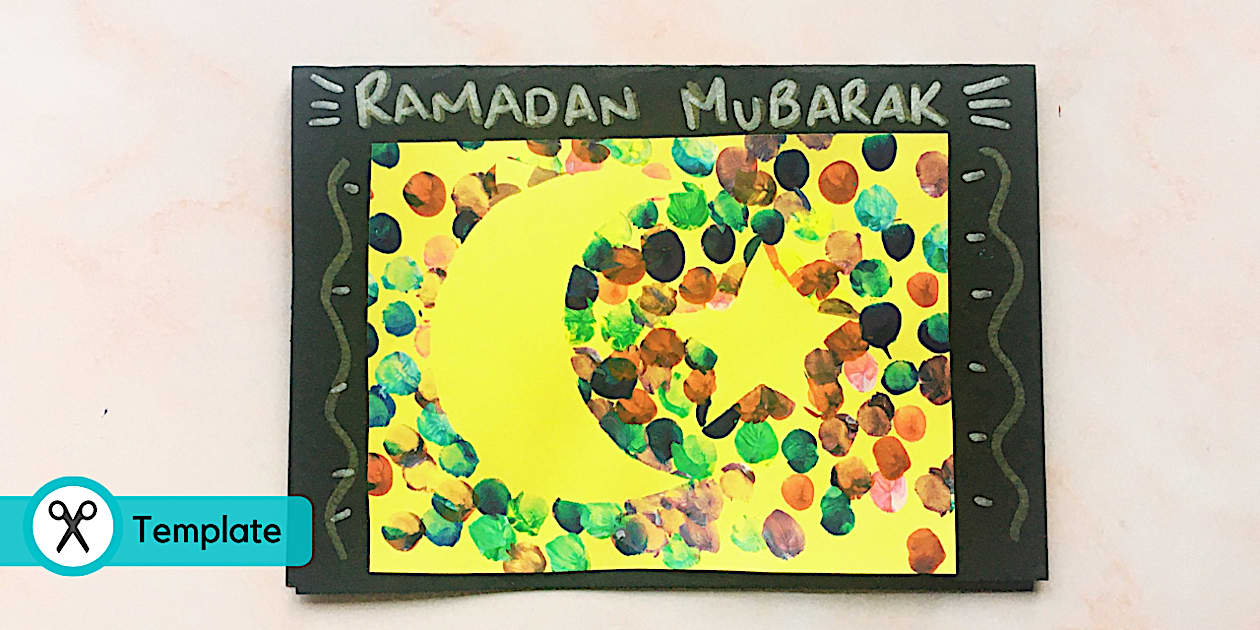 RAMADAN MUBARAK
Template